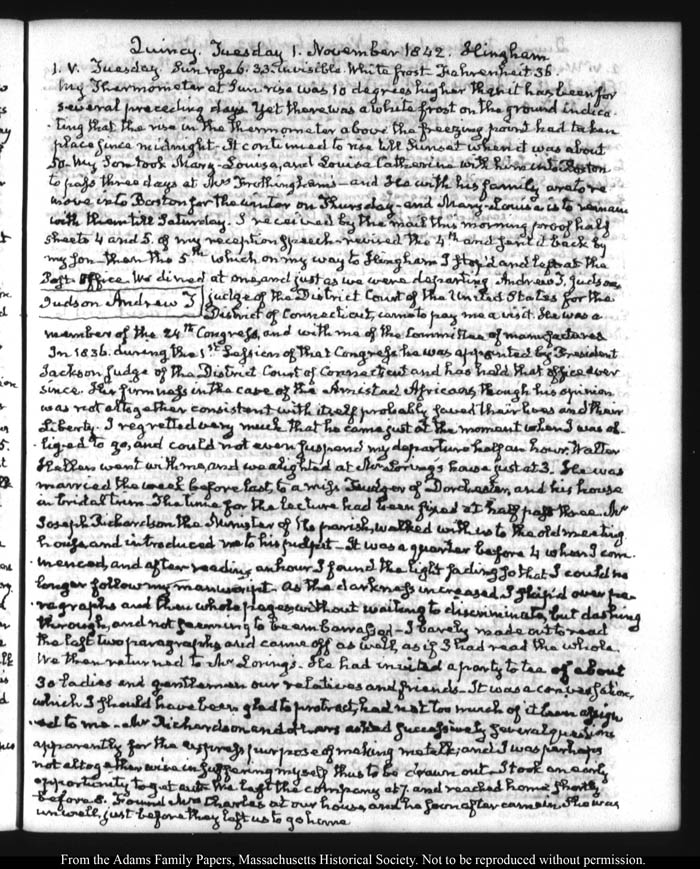 Quincy. Tuesday 1. November 1842. Hingham
1. V. Tuesday Sun rose 6. 33. invisible. White frost Fahrenheit 36.
My Thermometer at Sun rise was 10 degrees higher than it has been for
several preceding days. Yet there was a white frost on the ground indica-
ting that the rise in the thermometer above the freezing point had taken
place since midnight. It continued to rise till Sunset when it was about
50. My Son took Mary-Louisa, and Louisa Catherine with him into Boston
to pass three days at Mrs Frothingham's – and he with his family are to re
move into Boston for the winter on Thursday – and Mary-Louisa is to remain
with them till Saturday. I received by the mail this morning proof half
sheets 4 and 5. of my reception Speech – revised the 4th and sent it back by
my Son – then the 5th which on my way to Hingham I stop'd and left at the
Post-Office. We dined at one, and just as we were departing Andrew T. Judson
Judson Andrew T
judge of the District Court of the United States for the
District of Connecticut, came to pay me a visit. He was a
member of the 24th Congress, and with me of the Committee of manufactures
In 1836. during the 1st Session of that Congress he was appointed by President
Jackson Judge of the District Court of Connecticut and has held that office ever
since. His firmness in the case of the Amistad Africans, though his opinion
was not altogether consistent with itself probably saved their lives and their
Liberty. I regretted very much that he came just at the moment when I was ob-
liged to go, and could not even suspend my departure half an hour. Walter
Hellen went with me, and we alighted at Mr Loring's house just at 3. He was
married the week before last, to a Miss of Dorchester, and his house
in bridal trim. The time for the lecture had been fixed at half past three. Mr
Joseph Richardson the Minister of the parish, walked with us to the old meeting
house, and introduced me to his pulpit – It was a quarter before 4 when I com-
menced, and after reading an hour I found the light fading so that I could no
longer follow my manuscript. As the darkness increased I skip'd over pa-
ragraphs and then whole pages, without waiting to discriminate, but dashing
through, and not seeming to be embarrassed – I barely made out to read
the last two paragraphs and came off as well as if I had read the whole
We then returned to Mr Loring's. He had invited a party to tea of about
30 ladies and gentlemen our relatives and friends. It was a conversation,
which I should have been glad to protract, had not too much of it been assign
-ed to me – Mr Richardson and others asked successively several questions
apparently for the express purpose of making me talk; and I was perhaps
not altogether wise in suffering myself thus to be drawn out. I took an early
opportunity to get out. We left the company at 7. and reached home shortly
before 8. Found Mrs Charles at our house, and he soon after came in. She was
unwell just before they left us to go home
From the Adams Family Papers, Massachusetts Historical Society. Not to be reproduced without permission.